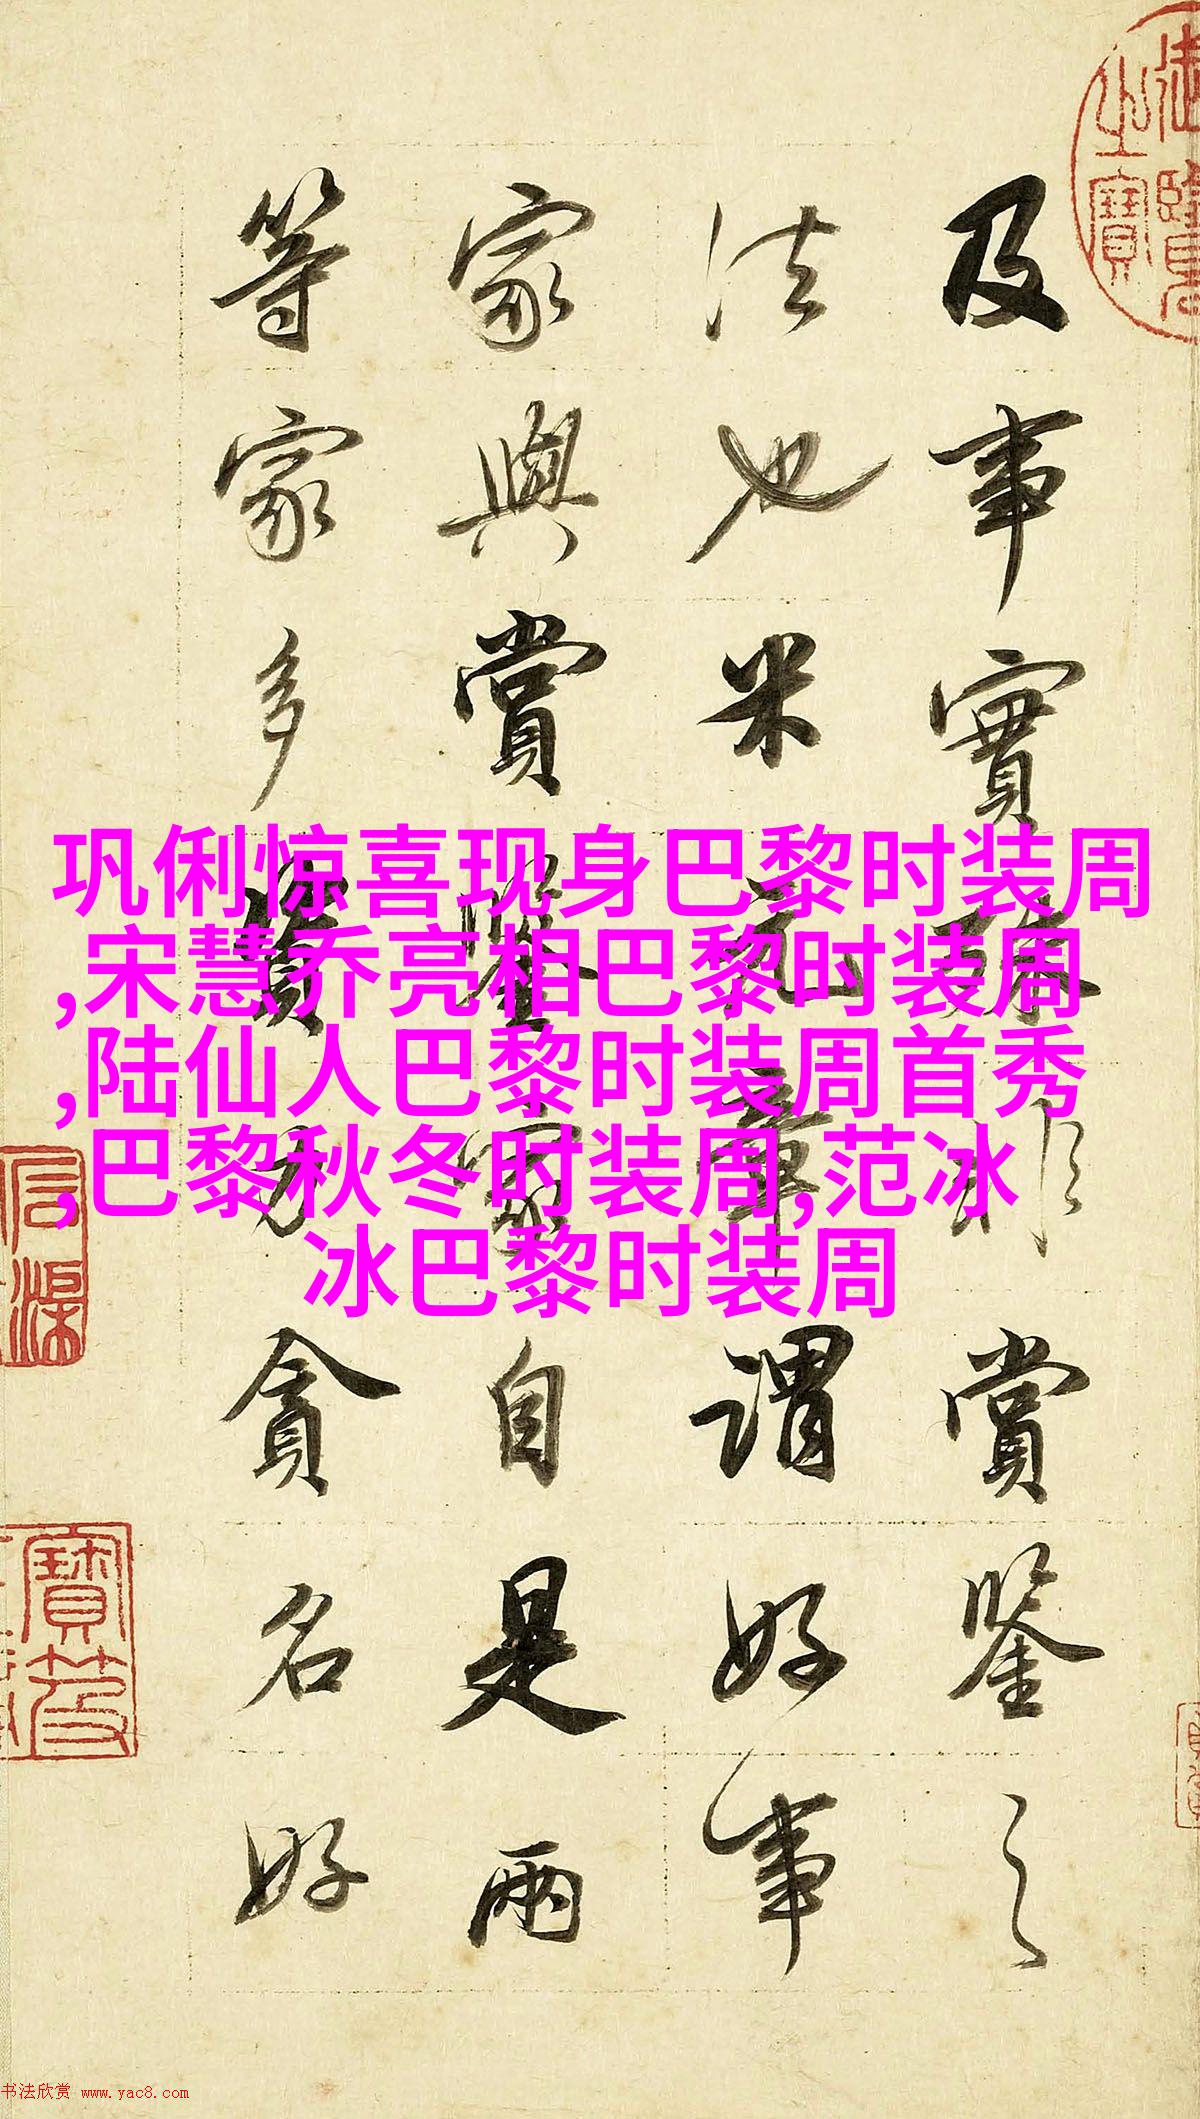 及事實殊形賞鑒之
法也米元章謂好事
家與賞鑒家自是兩
等家多資力貪名好
巩俐惊喜现身巴黎时装周
,宋慧乔亮相巴黎时装周
,陆仙人巴黎时装周首秀
,巴黎秋冬时装周,范冰
冰巴黎时装周
书法欣赏 www.yac8.com